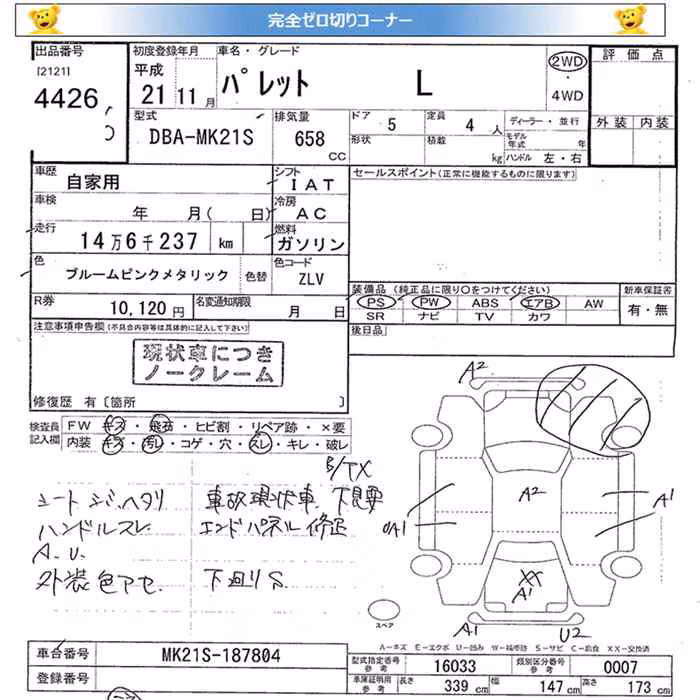 完全ゼロ切りコーナー
出品番号 初度登録年月 車名・グレード 評価点
[2121] 平成 パレット L 2WD
4426 21 11月 ・4WD
型式 排気量 ドア 5 定員 4人 ディーラー・並行 外装 内装
DBA-MK21S 658 CC 形状 積載 kg モデル年式 年
ハンドル 左・右
車歴 自家用 シフト IAT セールスポイント(正常に機能するものに限ります)
車検 年 月( 日) 冷房 AC
走行 14万6千237 km 燃料 ガソリン
色 ブルームピンクメタリック 色替 色コード ZLV
装備品 (純正品に限り○をつけてください) 新車保証書
R券 10,120円 名変通知期限 月 日 PS PW ABS エアB AW 有・無
SR ナビ TV カワ
注意事項申告欄(不具合内容等は具体的に記入して下さい) 後日品
現状車につき
ノークレーム
修復歴 有〔箇所 〕
検査員記入欄 FW キズ・飛石・ヒビ割・リペア跡・×要
内装 キズ・汚レ・コゲ・穴・スレ・キレ・破レ
B/TX
シート シミ、ヘタリ 車故現状車 下見要
ハンドルスレ エンドパネル修正
A.U.
外装色アセ 下廻りS
A2
A2
A1
A1
XX
A1
スペア
A1 U2
A-キズ E-エクボ U-凹み W-補修跡 S-サビ C-腐食 XX-交換済
車台番号 MK21S-187804 型式指定番号 参考 16033 類別区分番号 参考 0007
登録番号 車庫証明用 参考 長さ 339cm 幅 147cm 高さ 173cm
キズ